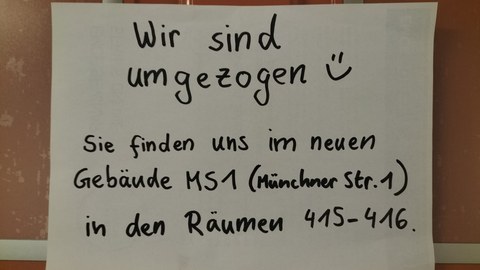 Wir sind
umgezogen :)
Sie finden uns im neuen
Gebäude MS1 (Münchner Str. 1)
in den Räumen 415-416.